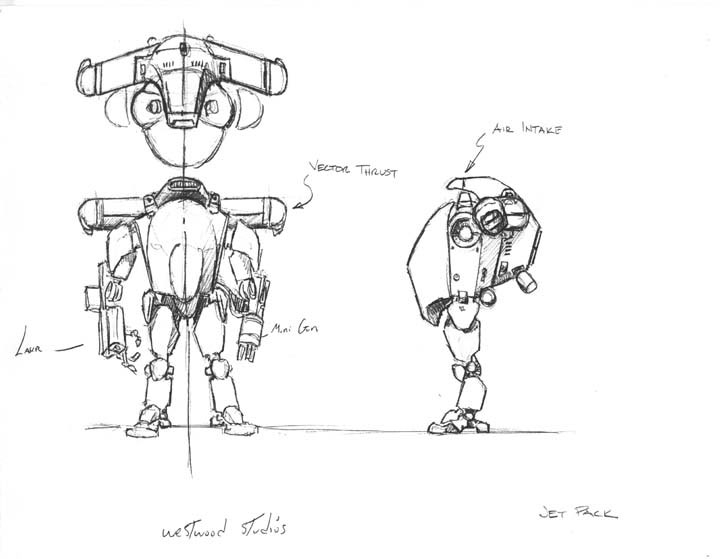 Air Intake
Vector Thrust
Mini Gun
Westwood Studios
Jet Pack